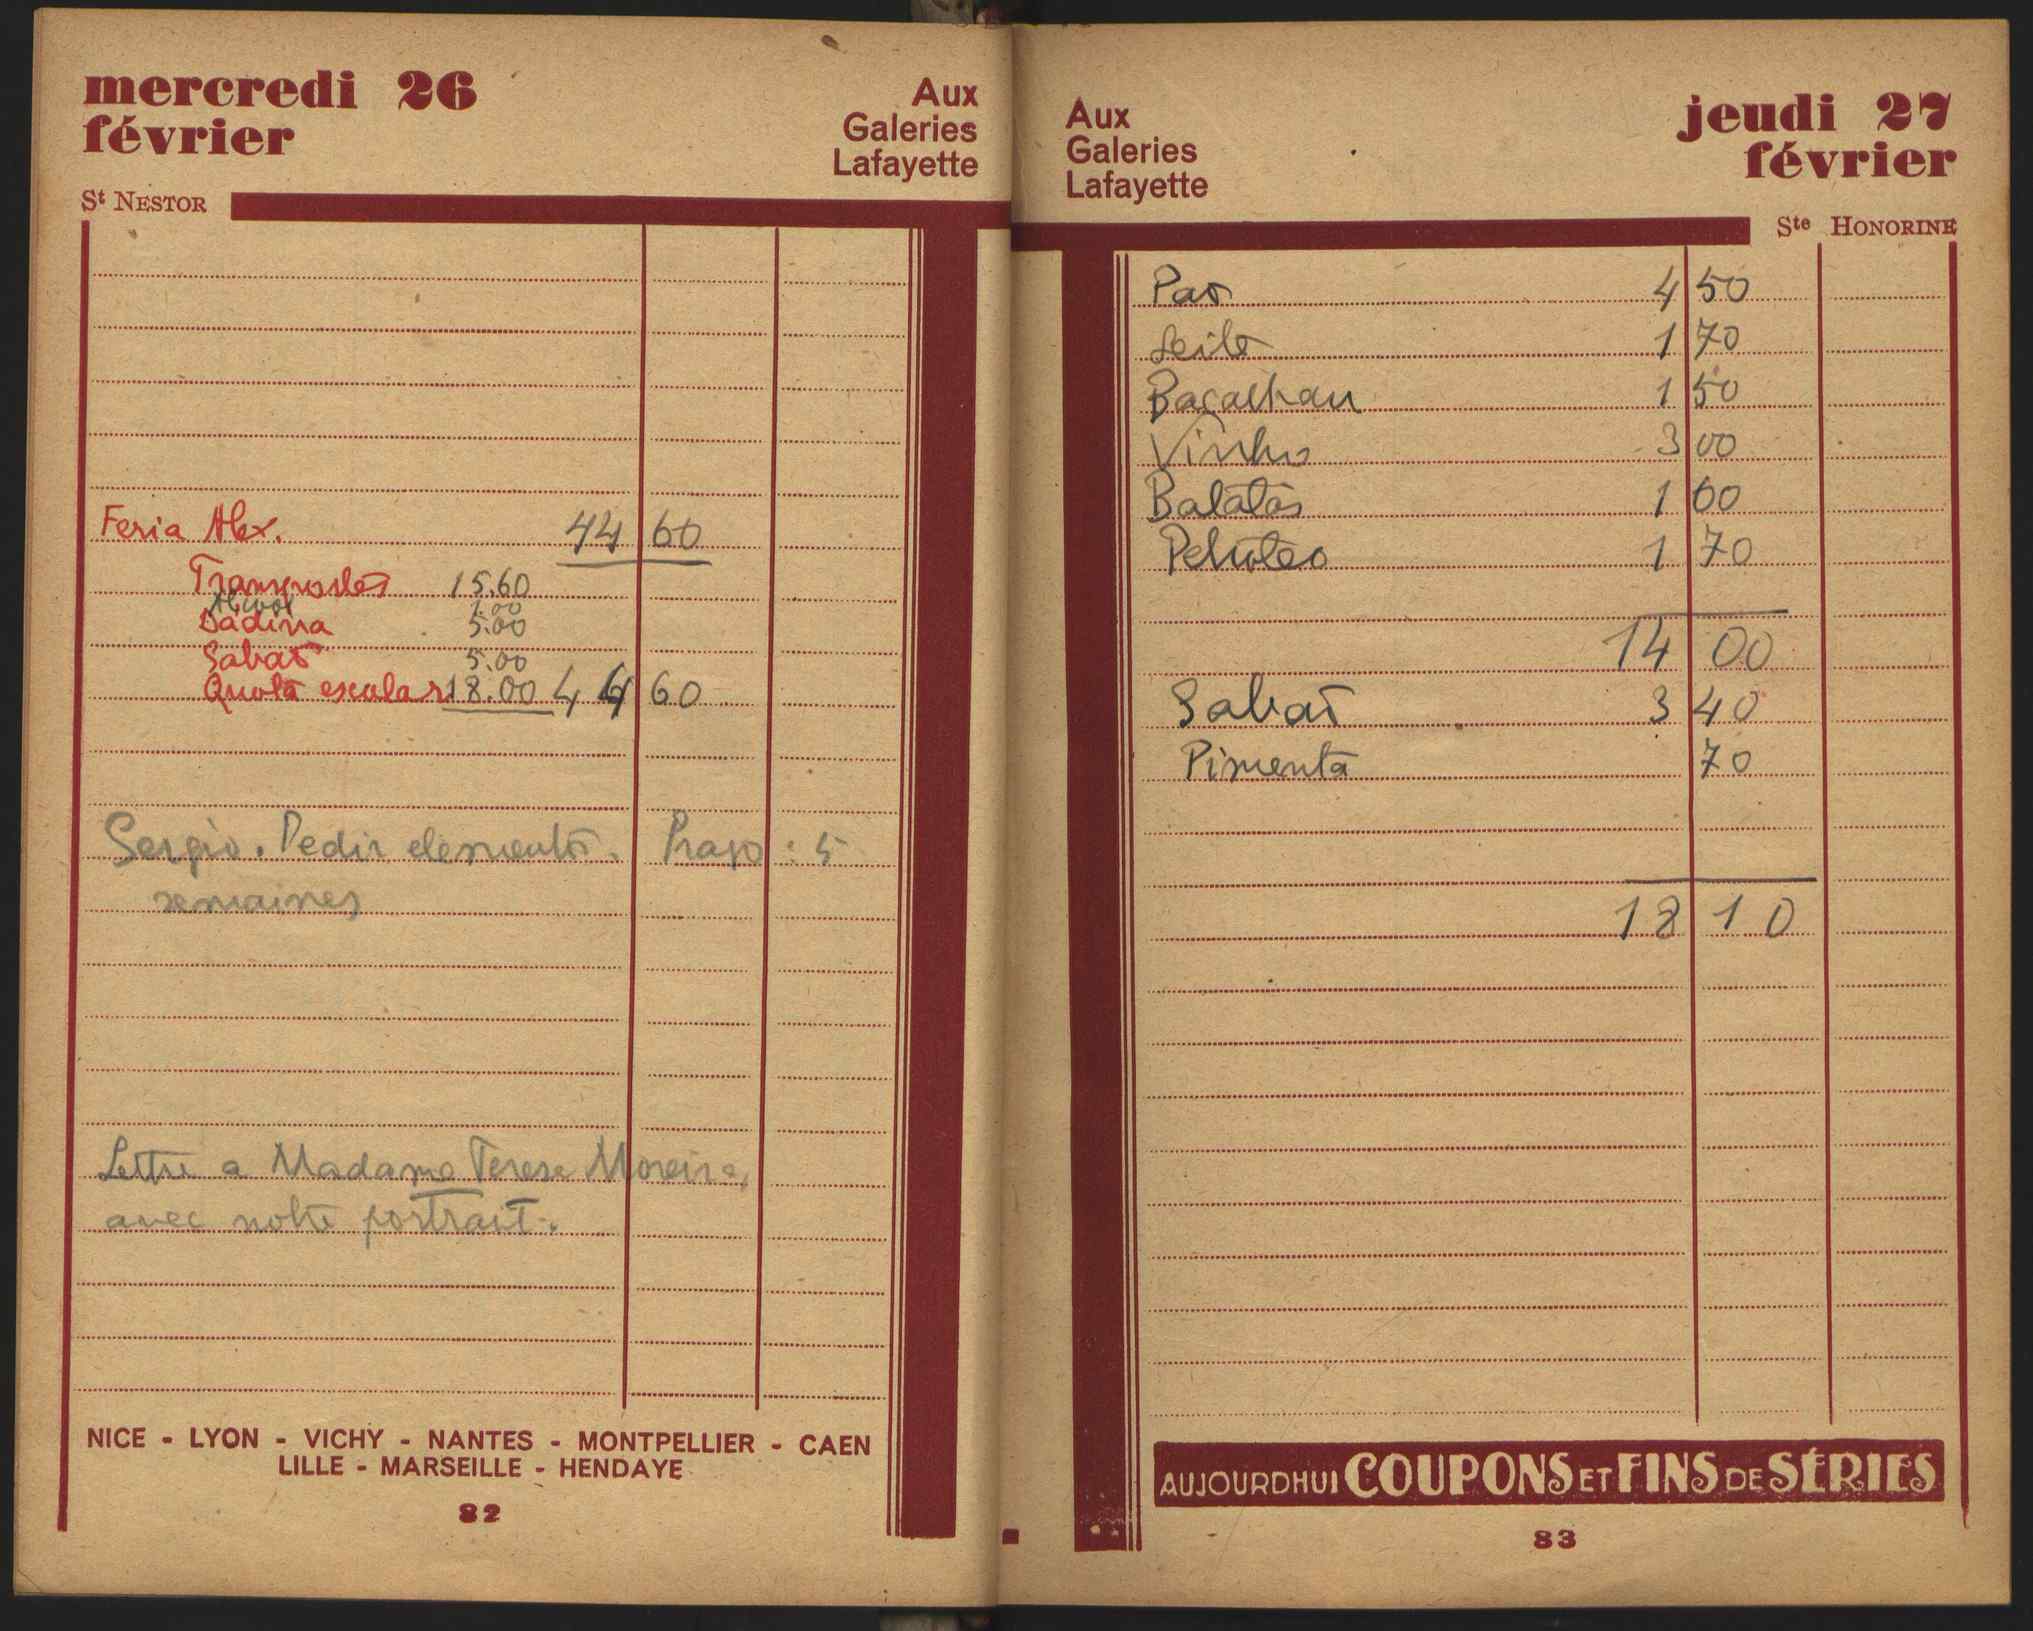 mercredi 26
février
Aux
Galeries
Lafayette
St NESTOR
Feria Alex. 44 60
Transportes 15.60
Alcool 1.00
Dadina 5.00
Sabaõ 5.00
Quota escolar 18.00 44 60
Sergio. Pedir elementos. Prazo : 5
semaines
Lettre a Madame Terese Moreira,
avec notre portrait.
NICE - LYON - VICHY - NANTES - MONTPELLIER - CAEN
LILLE - MARSEILLE - HENDAYE
82
Aux
Galeries
Lafayette
jeudi 27
février
Ste HONORINE
Pao 4 50
Leite 1 70
Baçalhau 1 50
Vinho 3 00
Batatas 1 60
Petroleo 1 70
14 00
Sabaõ 3 40
Pimenta 70
18 10
AUJOURDHUI COUPONS ET FINS DE SÉRIES
83